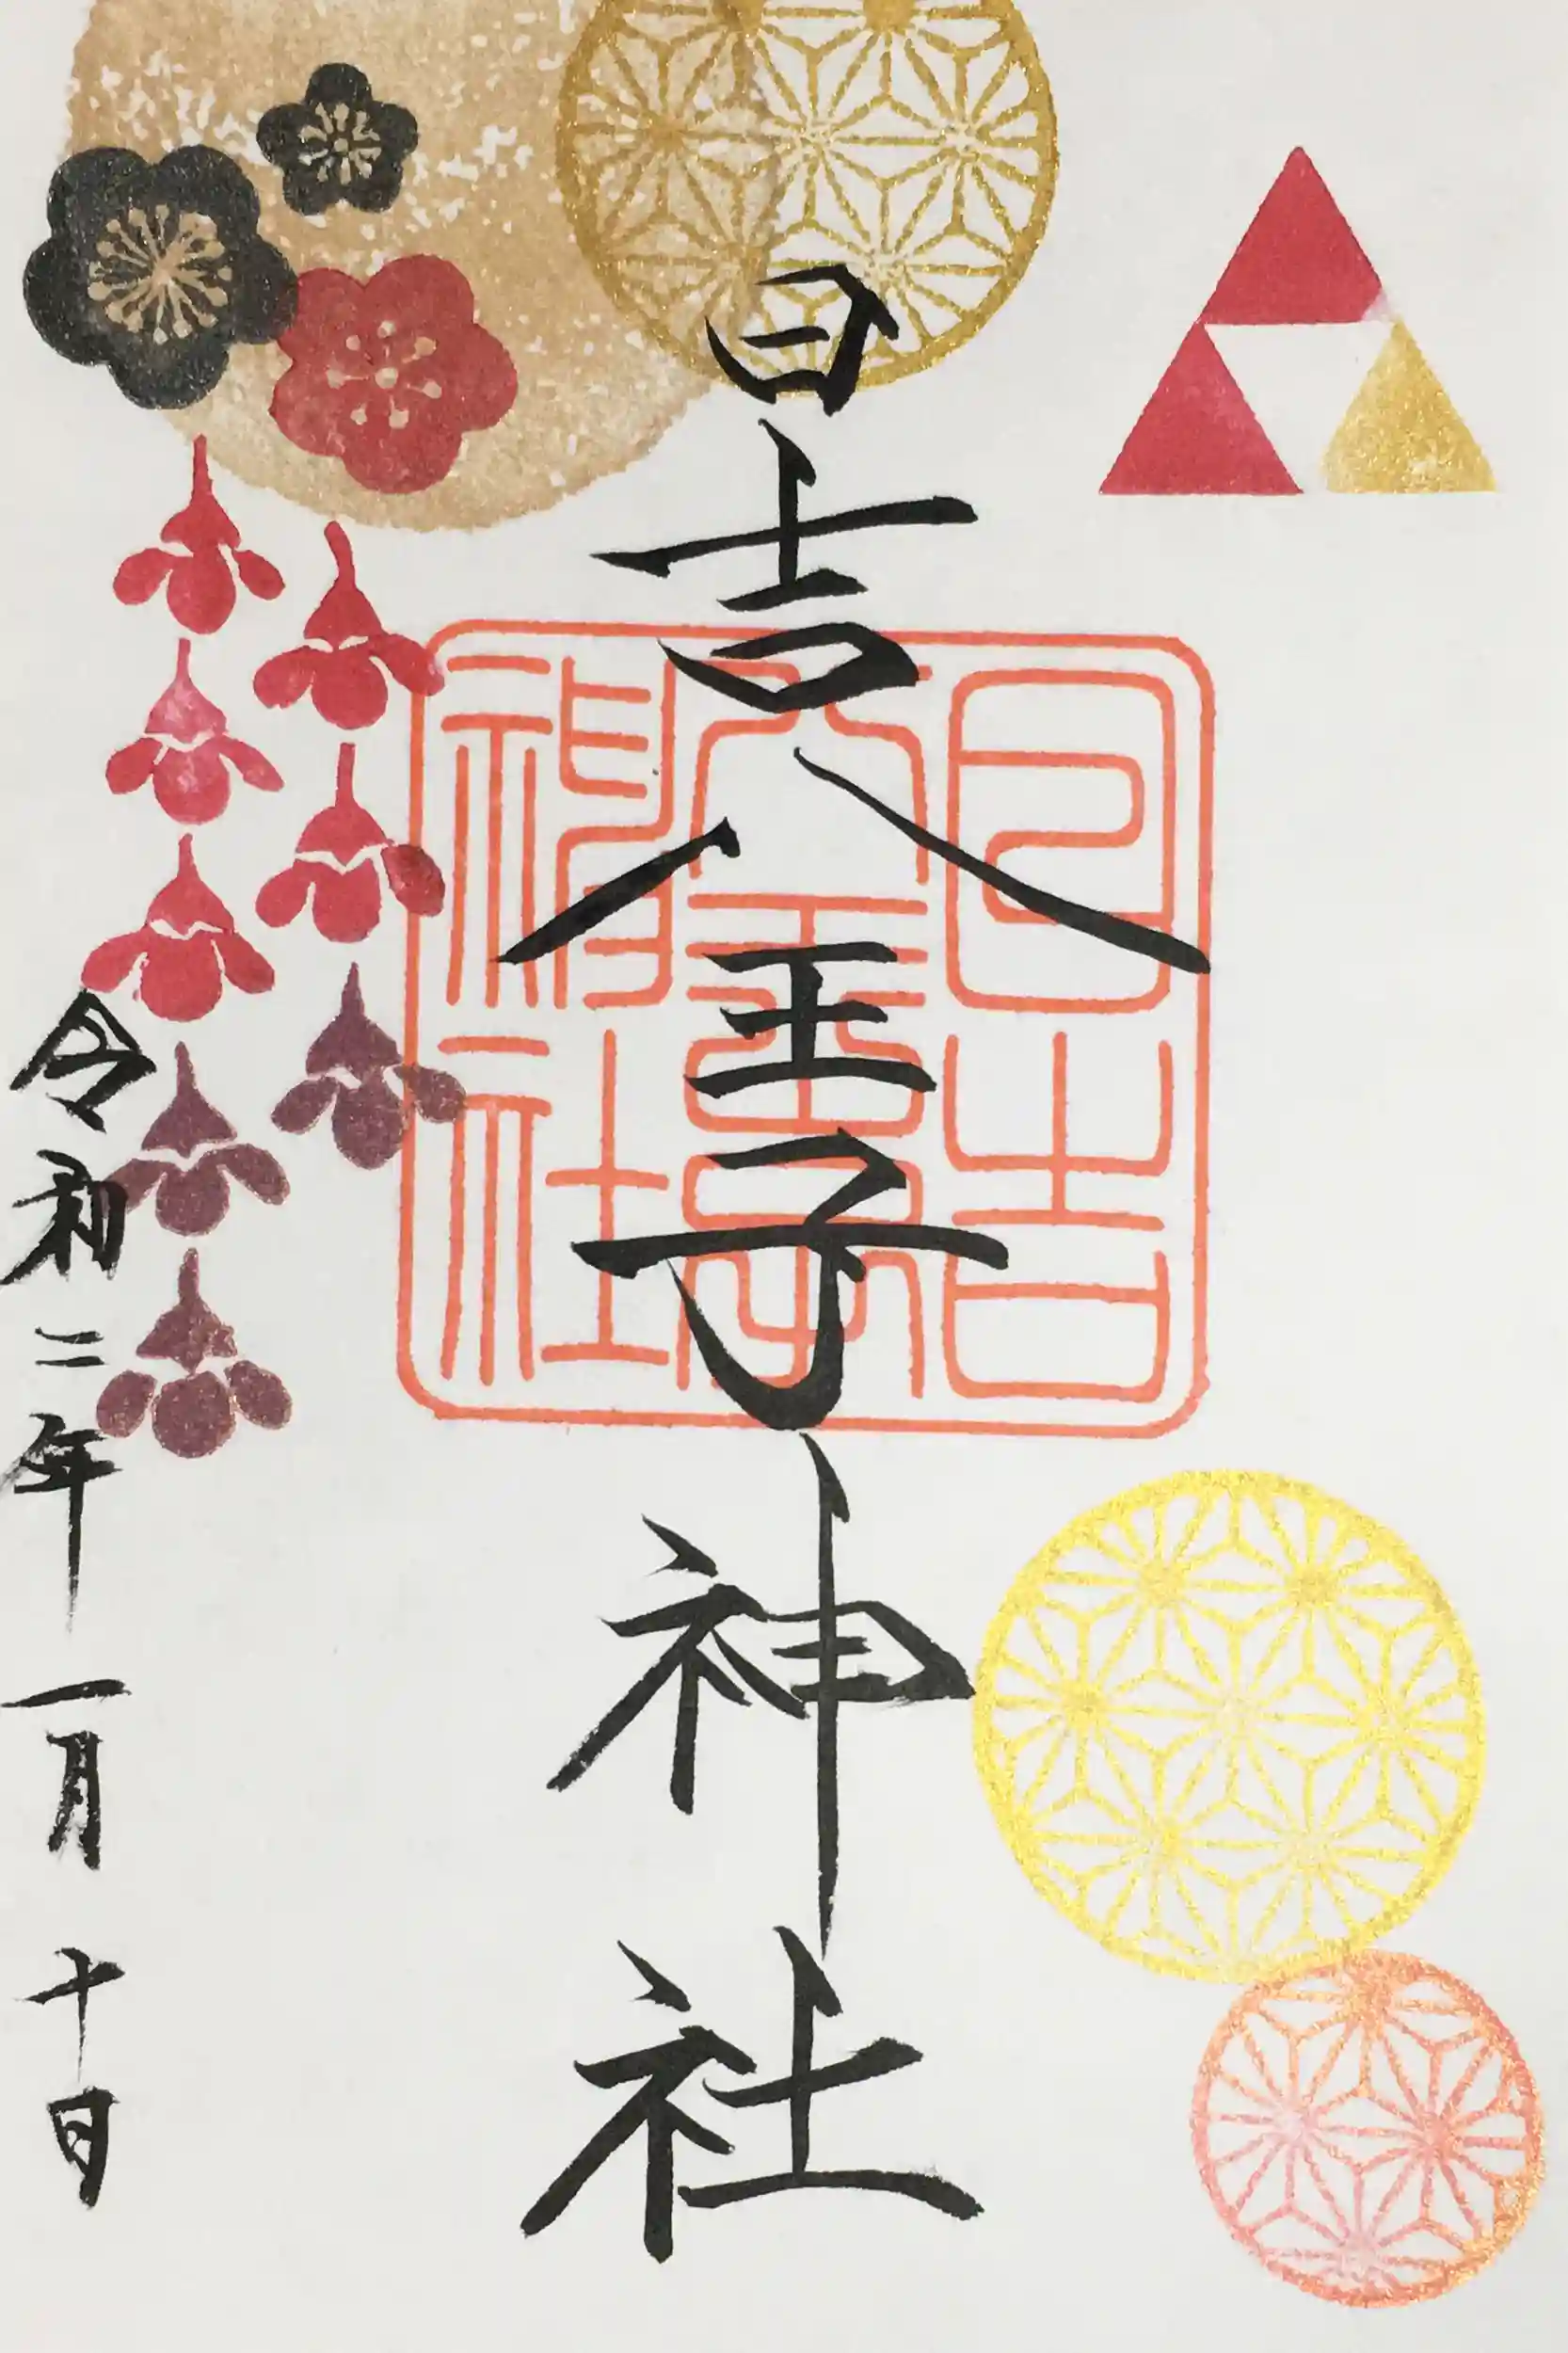 日吉八王子神社
日吉
八王子
神社
令和二年一月十日